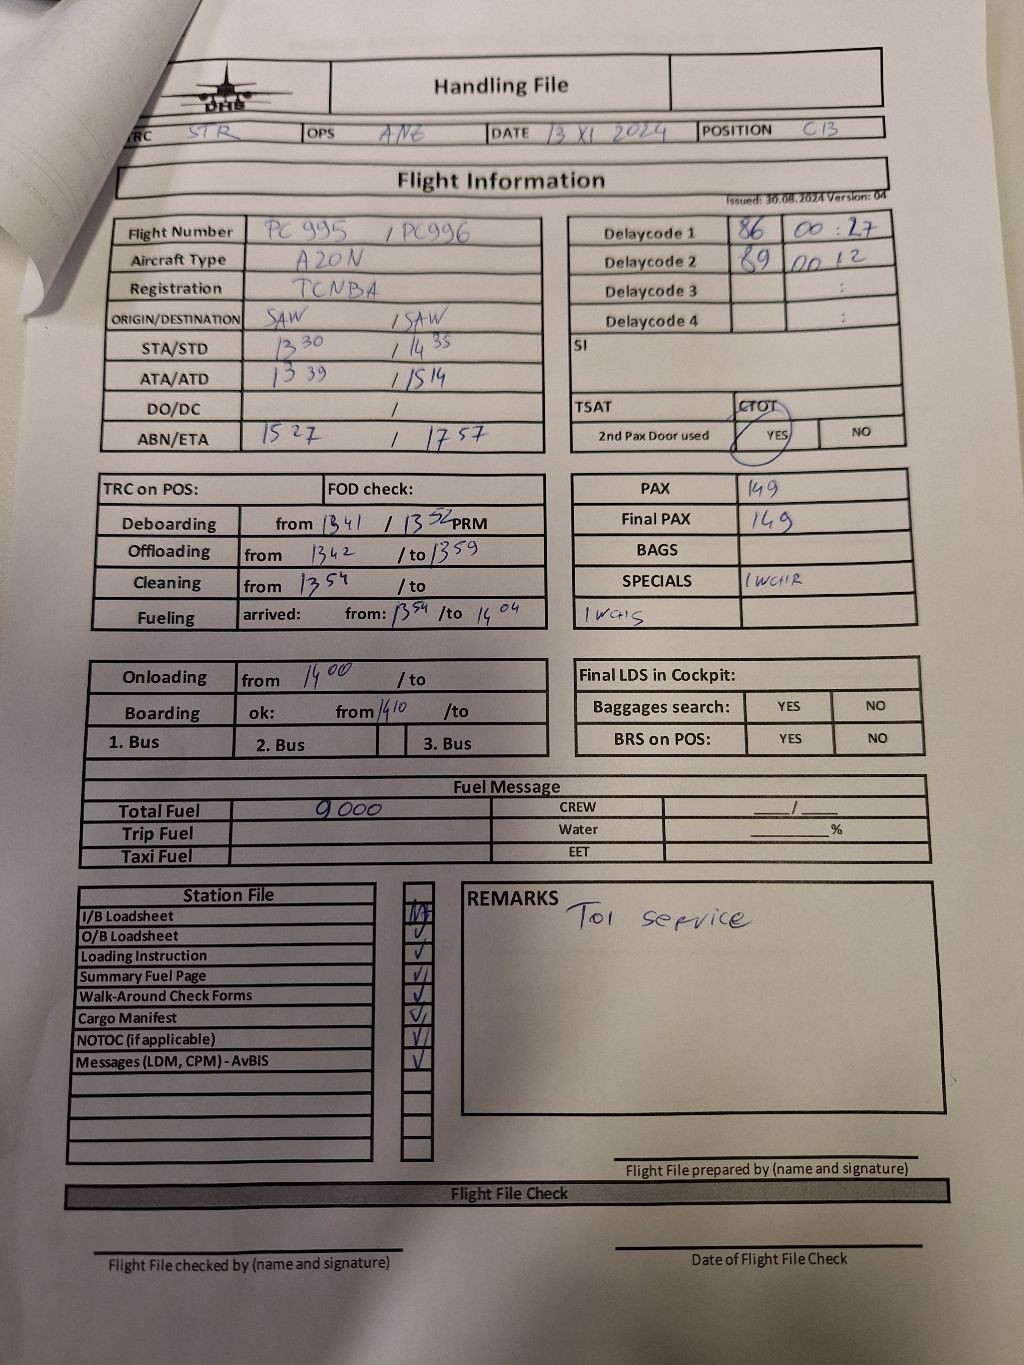 DHS
Handling File
TRC STR OPS DATE 13 XI 2024 POSITION C13
Flight Information
Issued: 30.08.2024 Version: 04
Flight Number PC 995 / PC996
Aircraft Type A20N
Registration TCNBA
ORIGIN/DESTINATION SAW / SAW
STA/STD 13 30 / 14 35
ATA/ATD 13 39 / 15 14
DO/DC /
ABN/ETA 15 27 / 17 57
Delaycode 1 86 00 : 27
Delaycode 2 89 00 12
Delaycode 3 :
Delaycode 4 :
SI
TSAT CTOT
2nd Pax Door used YES NO
TRC on POS: FOD check:
Deboarding from 1341 / 13 52 PRM
Offloading from 1342 / to 13 59
Cleaning from 13 54 / to
Fueling arrived: from: 13 54 /to 14 04
PAX 149
Final PAX 149
BAGS
SPECIALS 1 WCHR
1 WCHS
Onloading from 14 00 / to
Boarding ok: from 14 10 /to
1. Bus 2. Bus 3. Bus
Final LDS in Cockpit:
Baggages search: YES NO
BRS on POS: YES NO
Fuel Message
Total Fuel 9000 CREW ____/____
Trip Fuel Water ________%
Taxi Fuel EET
Station File
I/B Loadsheet
O/B Loadsheet ✓
Loading Instruction ✓
Summary Fuel Page ✓
Walk-Around Check Forms ✓
Cargo Manifest ✓
NOTOC (if applicable) ✓
Messages (LDM, CPM) - AvBIS ✓
REMARKS
TOI service
Flight File prepared by (name and signature)
Flight File Check
Flight File checked by (name and signature)
Date of Flight File Check